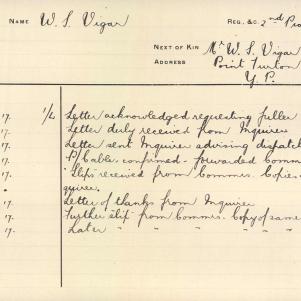 NAME W. S. Vigar REG., &C. 2nd Pio
NEXT OF KIN Mr W. S. Vigar
ADDRESS Point Turton
Y.P.
17. 1/- Letter acknowledged requesting fuller
17. Letter duly received from Inquirer
17. Letter sent Inquirer advising dispatch
17. P/Cable. confirmed - forwarded Comm
17. Slip received from Commis. Copies
quirer.
17. Letter of thanks from Inquirer
17. Further slip from Commis. Copy of same
17. Later " " " "